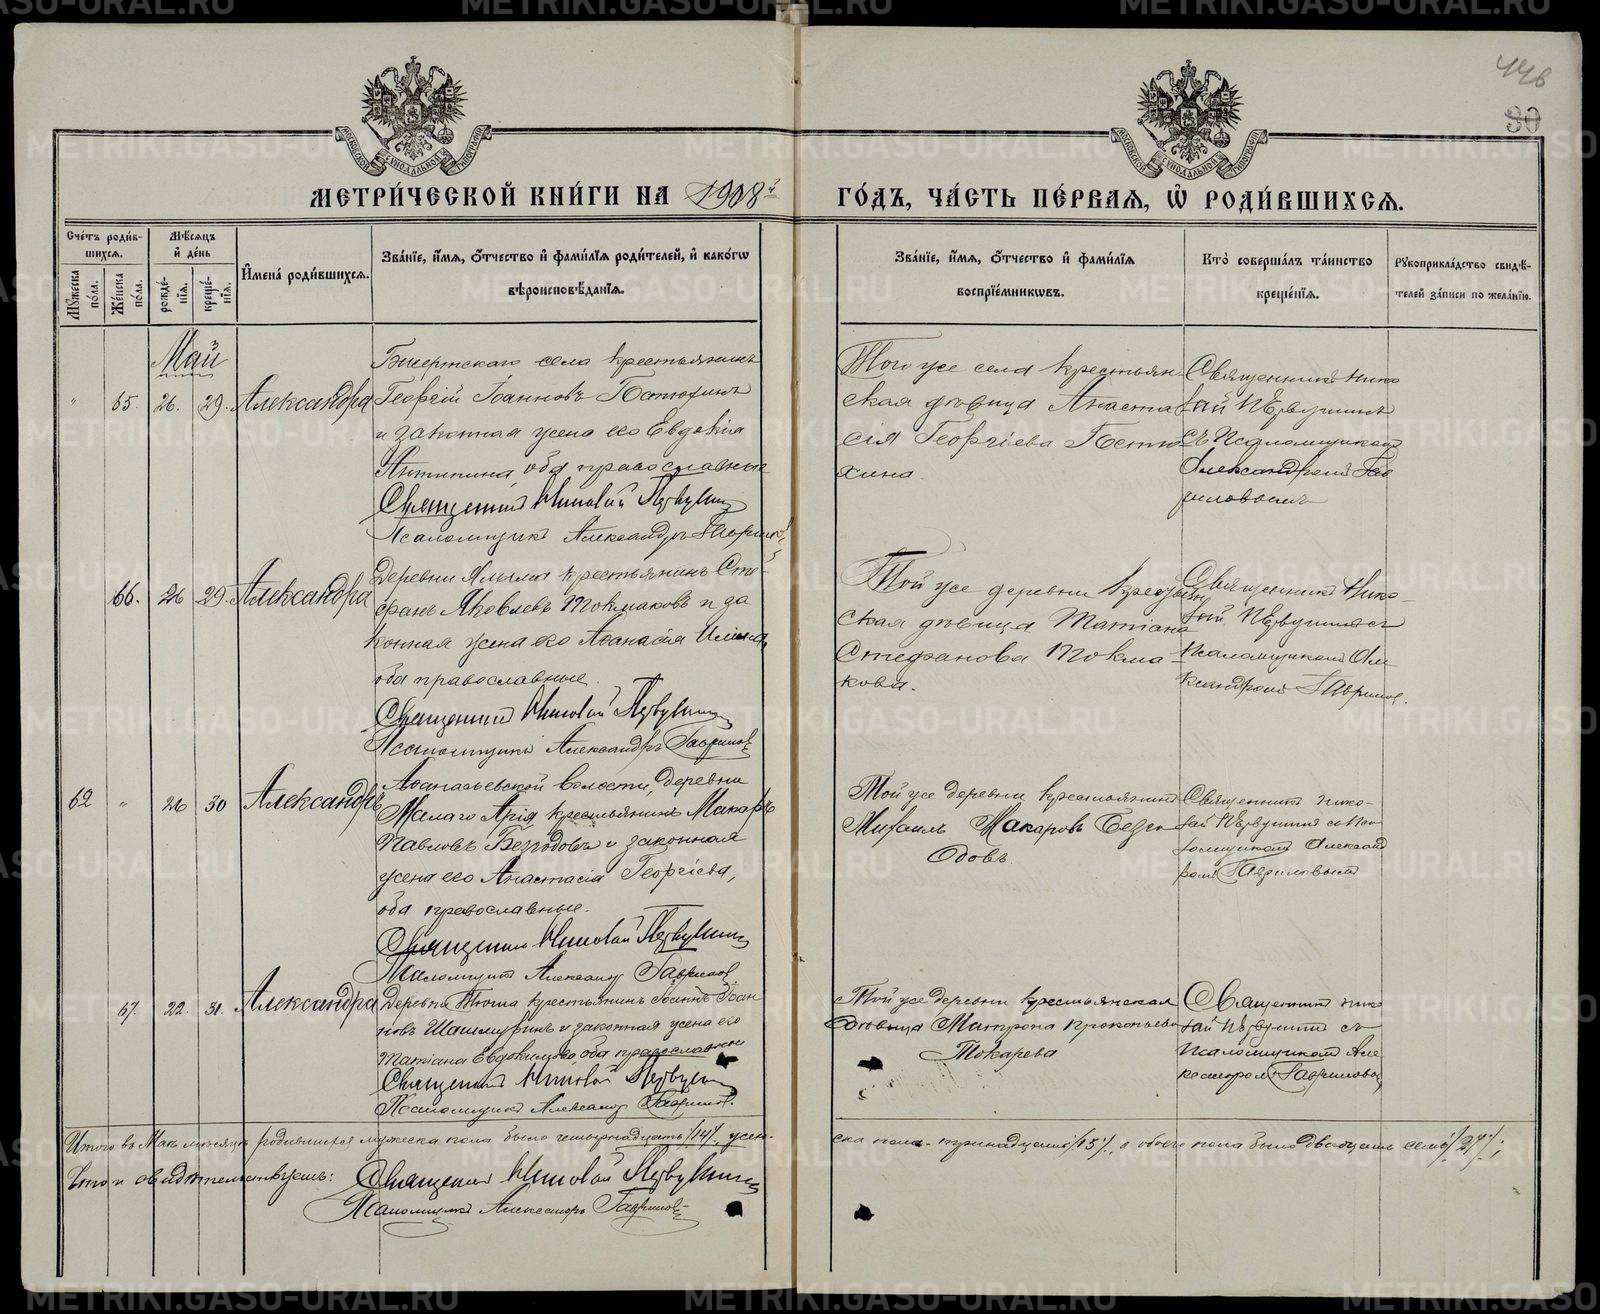 446
30
МОСКОВСКОЙ СѴНОДАЛЬНОЙ ТИПОГРАФІИ
МОСКОВСКОЙ СѴНОДАЛЬНОЙ ТИПОГРАФІИ
МЕТРИ́ЧЕСКОЙ КНИ́ГИ НА 1908й ГО́ДЪ, ЧА́СТЬ ПЕ́РВАѦ, Ѡ҆ РОДИ́ВШИХСѦ.
Сче́тъ роди́в-
шихсѧ.
Мѣ́сѧцъ
и҆ де́нь
Мꙋ́жеска по́ла.
Же́нска по́ла.
рожде́-нїѧ.
креще́-нїѧ.
И҆мена́ роди́вшихсѧ.
Зва́нїе, и҆́мѧ, ѻ҆́тчество и҆ фами́лїѧ роди́телей, и҆ како́гѡ
вѣроисповѣ́данїѧ.
Зва́нїе, и҆́мѧ, ѻ҆́тчество и҆ фами́лїѧ
воспрїе́мникѡвъ.
Кто̀ соверша́лъ та́инство
креще́нїѧ.
Рꙋкоприкла́дство свидѣ́-
телей за́писи по жела́нїю.
Май
" 65. 26. 29. Александра
Бисертскаго села крестьянинъ
Георгій Іоанновъ Пстюхинъ
и законная жена его Евдокія
Антипина, оба православные
Священникъ Николай Первушинъ
Псаломщикъ Александръ Гавриловъ
Того же села крестьян-
ская дѣвица Анаста-
сія Георгіева Пстю-
хина.
Священникъ Нико-
лай Первушинъ
съ псаломщикомъ
Александромъ Гав-
риловымъ
66. 26 29. Александра
Деревни Алыма крестьянинъ Сте-
фанъ Яковлевъ Токмаковъ и за
конная жена его Аѳанасія Ильина,
оба православные.
Священникъ Николай Первушинъ
Псаломщикъ Александръ Гавриловъ
Той же деревни крестьян
ская дѣвица Татіана
Стефанова Токма-
кова.
Священникъ Нико-
лай Первушинъ съ
псаломщикомъ Але
ксандромъ Гаврилов.
62 " 26 30 Александръ
Аѳанасьевской волости, деревни
Малаго Арія крестьянинъ Макаръ
Павловъ Безгодовъ и законная
жена его Анастасія Георгіева,
оба православные.
Священникъ Николай Первушинъ
Псаломщикъ Александръ Гавриловъ
Той же деревни крестьянинъ
Михаилъ Макаровъ Безго-
довъ.
Священникъ Нико-
лай Первушинъ съ пса-
ломщикомъ Александ
ромъ Гавриловымъ
67. 22. 31. Александра
Деревни крестьянинъ Іоаннъ Іоан
новъ и законная жена его
Татіана Евдокимова оба православные
Священникъ Николай Первушинъ
Псаломщикъ Александръ Гавриловъ.
Той же деревни крестьянская
дѣвица Матрона Прокопьева
Токарева
Священникъ Нико
лай Первушинъ съ
псаломщикомъ Але
ксандромъ Гавриловы
Итого въ Маѣ мѣсяцѣ родившихся мужеска пола было четырнадцать /14/, жен-
ска пола - тринадцать /13/, а обоего пола было двадцать семь /27/;
Что и свидѣтельствуемъ: Священникъ Николай Первушинъ
Псаломщикъ Александръ Гавриловъ
METRIKI.GASO-URAL.RU